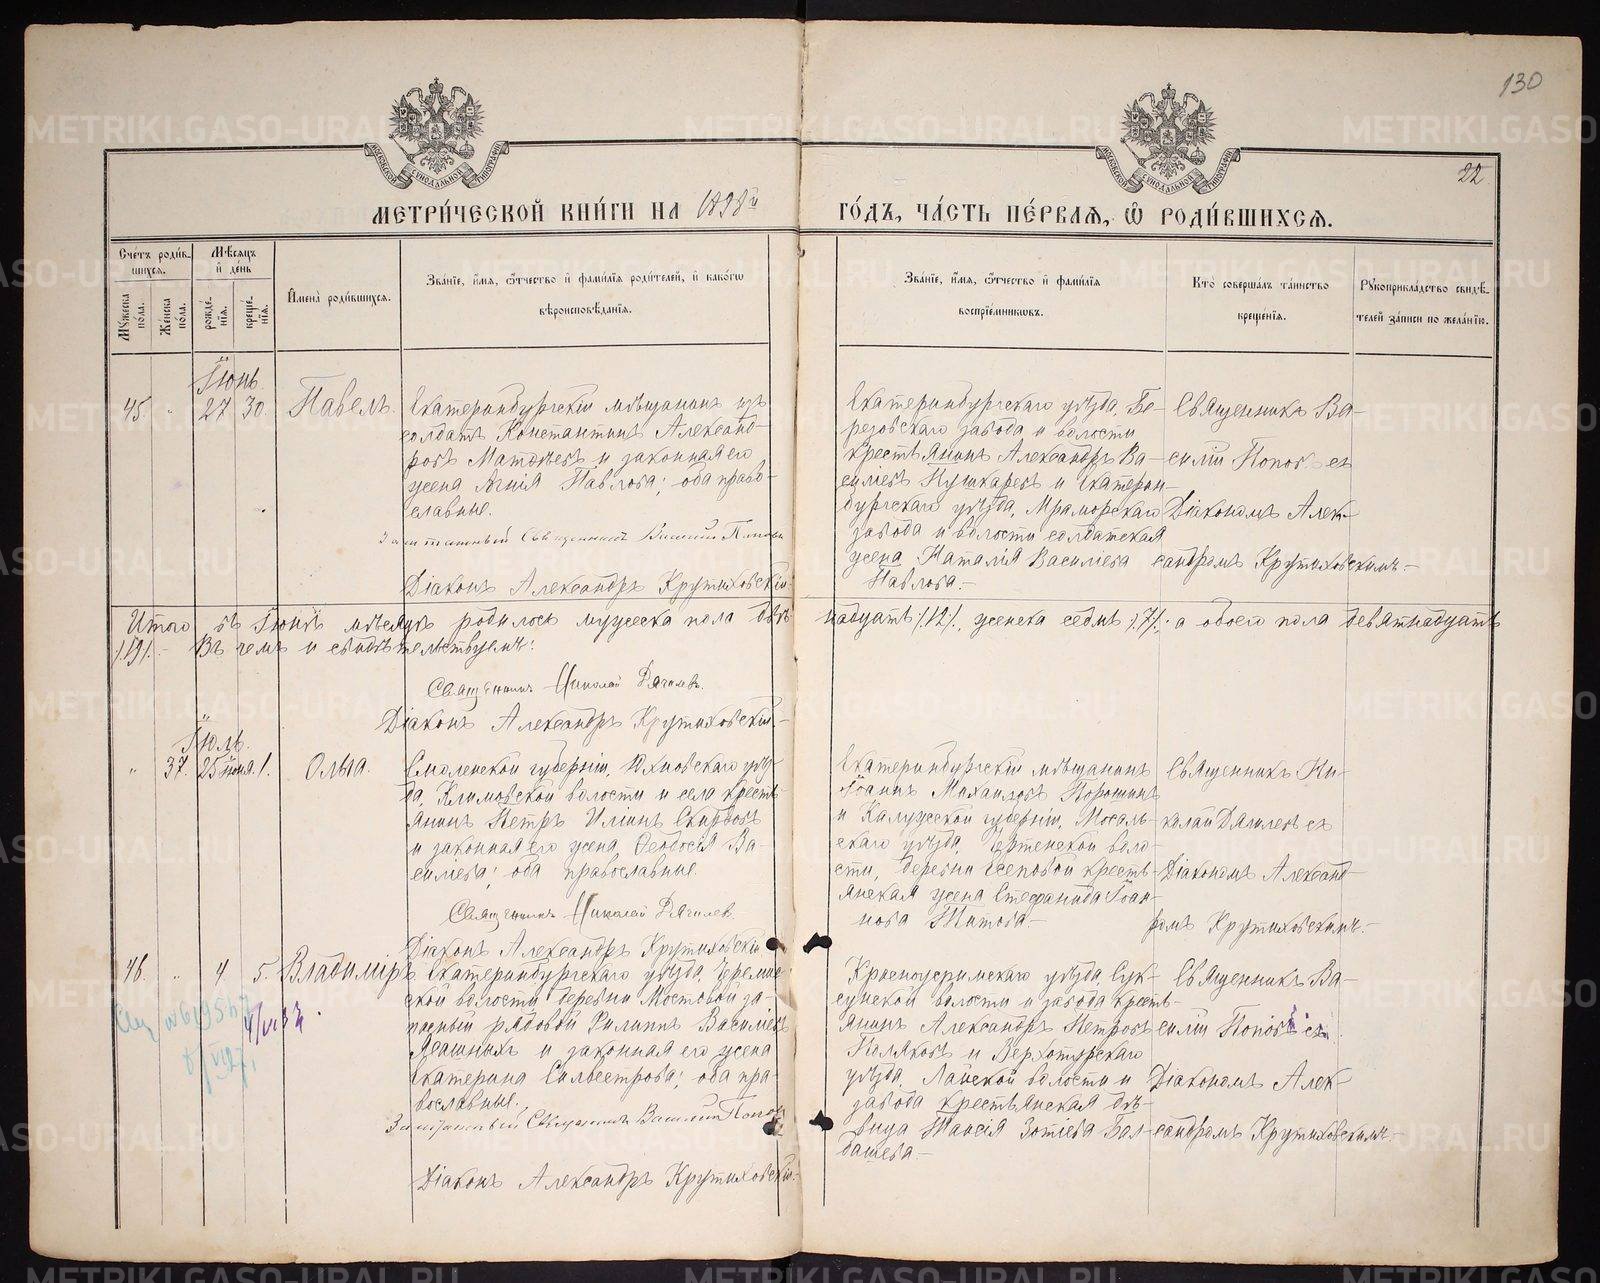 130
22
МЕТРИ́ЧЕСКОЙ КНИ́ГИ НА 1898й ГО́ДЪ, ЧА́СТЬ ПЕ́РВАѦ, Ѿ РОДИ́ВШИХСѦ.
Счетъ роди́вшихсѧ.
Мꙋжеска по́ла.
Же́нска по́ла.
Мѣ́сѧцъ и҆ де́нь
рожде́нїѧ.
креще́нїѧ.
И҆мена̀ роди́вшихсѧ.
Зва́нїе, и҆́мѧ, ѻ҆́тчество и҆ фами́лїѧ роди́телей, и҆ како́гѡ
вѣроисповѣ́данїѧ.
Зва́нїе, и҆́мѧ, ѻ҆́тчество и҆ фами́лїѧ
воспрїе́мникѡвъ.
Кто̀ соверша́лъ та́инство
креще́нїѧ.
Рꙋкоприкла́дство свидѣ́-
телей за́писи по жела́нїю.
Іюнь.
45. " 27 30. Павелъ.
Екатеринбургскій мѣщанинъ изъ
солдатъ Константинъ Александ-
ровъ Матвѣевъ и законная его
жена Агнія Павлова; оба право-
славные.
Заштатный Священникъ Василій Поповъ
Діаконъ Александръ Крутиховскій.
Екатеринбургскаго уѣзда, Бе-
резовскаго завода и волости
крестьянинъ Александръ Ва-
силіевъ Пушкаревъ и Екатерин-
бургскаго уѣзда, Мраморскаго
завода и волости солдатская
жена Наталія Василіева
Павлова.—
Священникъ Ва-
силій Поповъ съ
Діакономъ Алек-
сандромъ Крутиховскимъ.—
Итого въ Іюнѣ мѣсяцѣ родилось мужеска пола двѣ- надцать /12/, женска седмь /7/; а обоего пола девятнадцать
/19/.— Въ чемъ и свидѣтельствуемъ:
Священникъ Николай Дягилевъ.
Діаконъ Александръ Крутиховскій.—
Іюль.
" 37. 25 іюня. 1. Ольга.
Смоленской губерніи, Юхновскаго уѣз-
да, Климовской волости и села кресть-
янинъ Петръ Иліинъ Скирдовъ
и законная его жена Ѳеодосія Ва-
силіева; оба православные.
Священникъ Николай Дягилев.
Діаконъ Александръ Крутиховскій.
Екатеринбургскій мѣщанинъ
Іоаннъ Михаиловъ Порошинъ
и Калужской губерніи, Мосаль-
скаго уѣзда, волo-
сти, деревни кресть-
янская жена Стефанида Іоан-
нова Титова.—
Священникъ Ни-
колай Дягилевъ съ
Діакономъ Александ-
ромъ Крутиховскимъ.—
46. " 4 5. Владиміръ
Екатеринбургскаго уѣзда,
ской волости деревни Мостовой за-
пасный рядовой Филиппъ Василіевъ
и законная его жена
Екатерина Силвестрова; оба пра-
вославные.
Заштатный Священникъ Василій Поповъ
Діаконъ Александръ Крутиховскій.
Красноуфимскаго уѣзда, Сук-
сунской волости и завода кресть-
янинъ Александръ Петровъ
Поляковъ и Верхотурскаго
уѣзда, Лайской волости и
завода крестьянская дѣ-
вица Таисія Зотіева Бал-
дашева.—
Священникъ Ва-
силій Поповъ съ
Діакономъ Алек-
сандромъ Крутиховскимъ.—